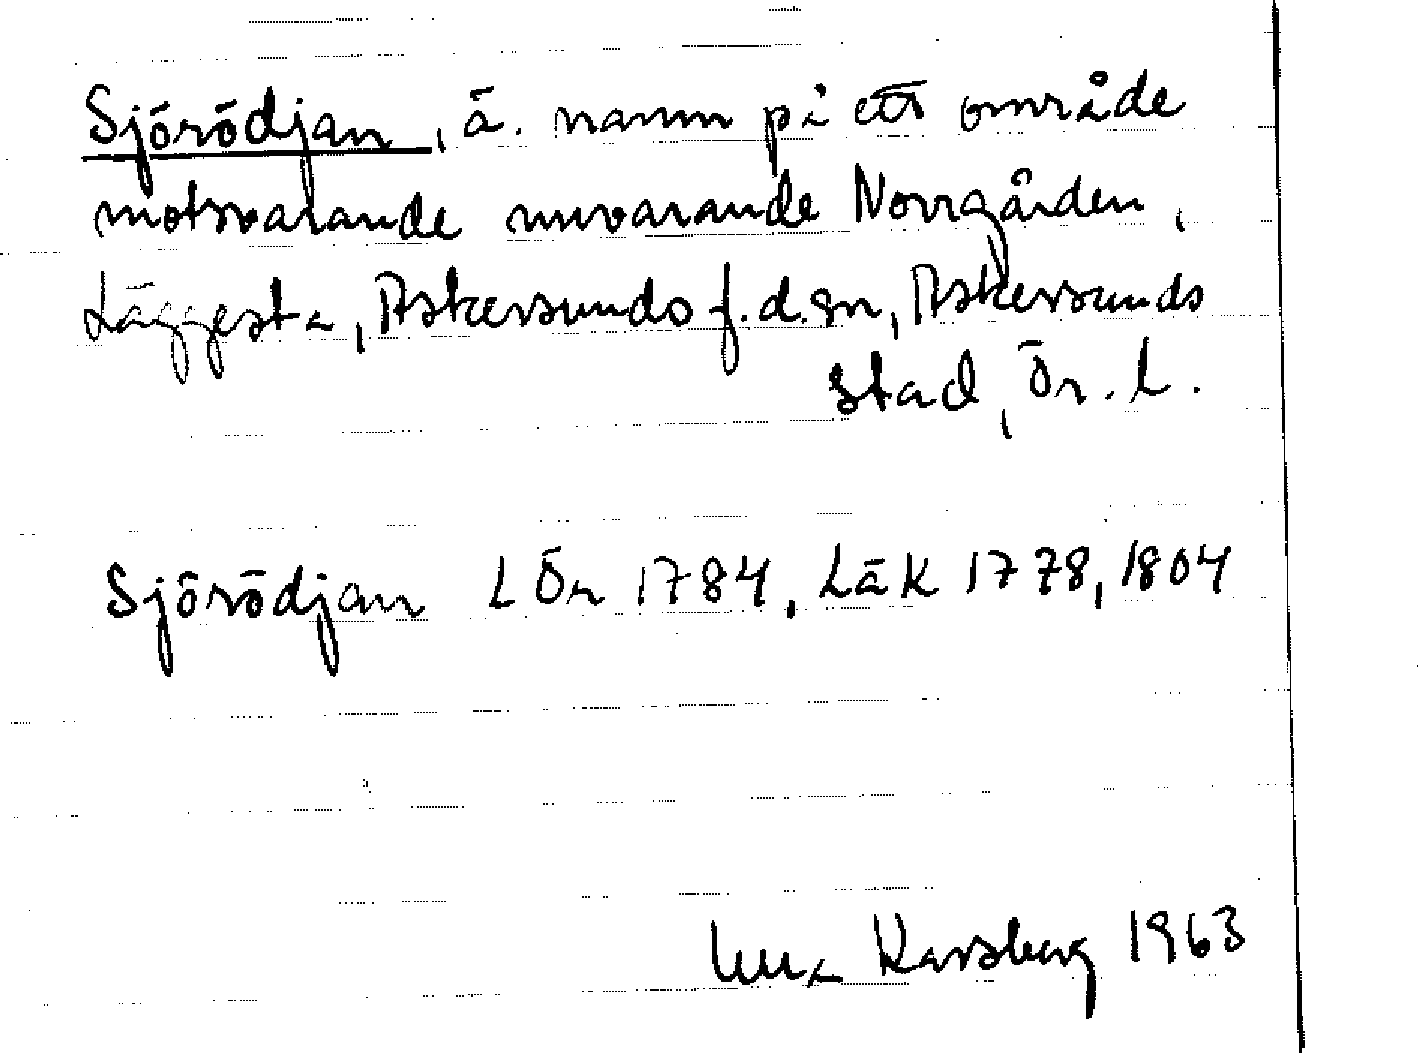 Sjörödjan, ä. namn på ett område
motsvarande nuvarande Norrgården,
Läggesta, Askersunds f.d. sn, Askersunds
stad, Ör. l.
Sjörödjan LÖr 1784, Läk 1778, 1804
Karsberg 1963